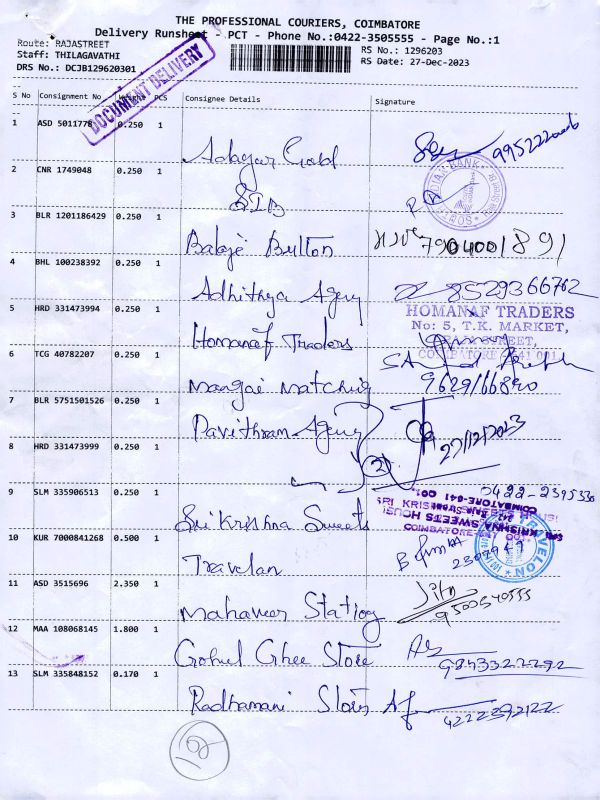 THE PROFESSIONAL COURIERS, COIMBATORE
Delivery Runsheet - PCT - Phone No.:0422-3505555 - Page No.:1
Route: RAJASTREET
RS No.: 1296203
Staff: THILAGAVATHI
RS Date: 27-Dec-2023
DRS No.: DCJB129620301
DOCUMENT DELIVERY
S No Consignment No Weight PCS Consignee Details Signature
1 ASD 5011778 0.250 1
Adayar Gold
2 CNR 1749048 0.250 1
SIB
INDIAN BANK
3 BLR 1201186429 0.250 1
Balaji Button 7904001891
4 BHL 100238392 0.250 1
Adhithya Agency 8529366762
5 HRD 331473994 0.250 1
HOMANAF TRADERS
No: 5, T.K. MARKET,
COIMBATORE - 641 001
Homanaf Traders
6 TCG 40782207 0.250 1
Mangai Matching 9629166890
7 BLR 5751501526 0.250 1
Pavithram Agency 27/12/2023
8 HRD 331473999 0.250 1
21
9 SLM 335906513 0.250 1
0422-2395336
Sri Krishna Sweets
SRI KRISHNA SWEETS HOUSE
COIMBATORE-641 001
10 KUR 7000841268 0.500 1
Travelon
TRAVELON
11 ASD 3515696 2.350 1
Mahaveer Station 9500540555
12 MAA 108068145 1.800 1
Gokul Ghee Store 9843322292
13 SLM 335848152 0.170 1
Radhamani Stores 4222392122